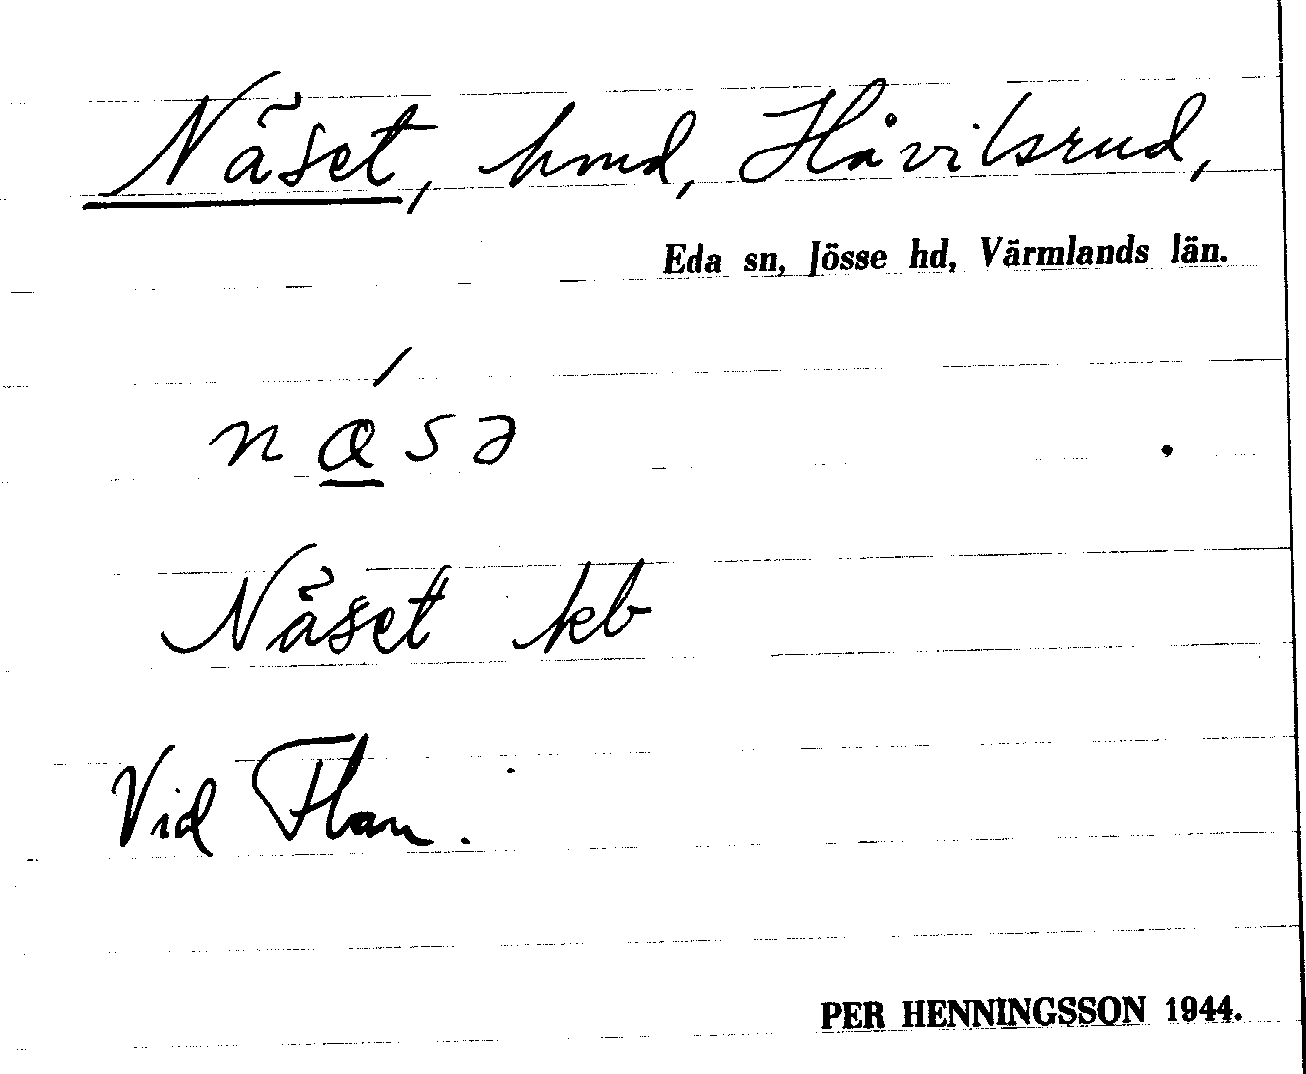 Näset, hmd, Håvilsrud,
Eda sn, Jösse hd, Värmlands län.
Näset kb
Vid Flan.
PER HENNINGSSON 1944.